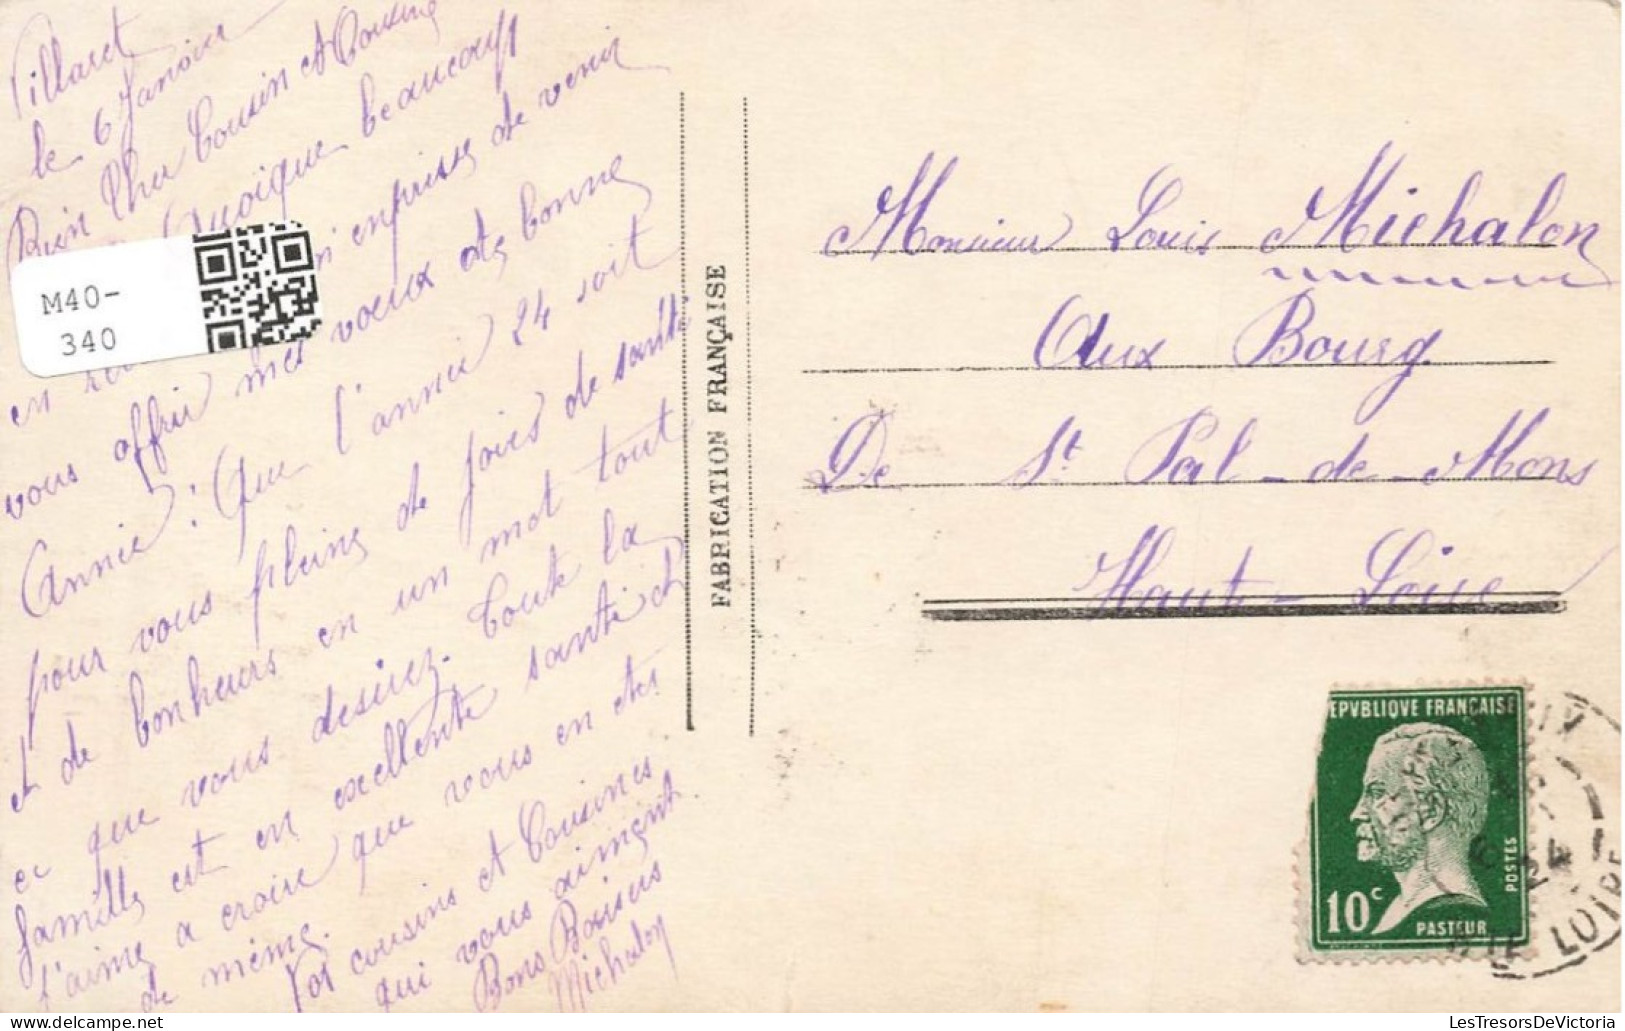 Villaret
le 6 Janvier
Bien Cher Cousin et Cousine
Quoique beaucoup
en enprisse de venir
vous offrir mes voeux de bonne
Année : Que l'année 24 soit
pour vous pleine de joies de santé
et de bonheurs en un mot tout
ce que vous desirez. Toute la
famille est en exellente santé et
j'aime a croire que vous en ete
de même.
Vos cousins et Cousines
qui vous aiment
Bons Baisers
Michalon
M40-
340
FABRICATION FRANÇAISE
Monsieur Louis Michalon
Aux Bourg
De St Pal-de-Mons
Haute-Loire
EPVBLIQUE FRANÇAISE
10c
POSTES
PASTEUR
24
HTE LOIRE
LesTresorsDeVictoria